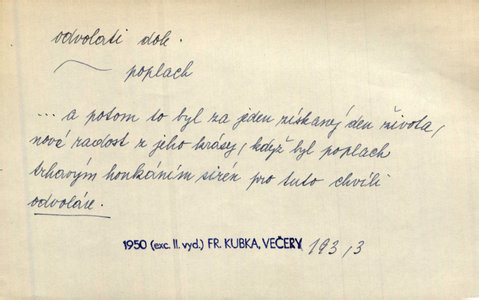 odvolati dok.
poplach
... a potom to byl za jeden získaný den života,
nové radost z jeho krásy, když byl poplach
trhavým houkáním sirén pro tuto chvíli
odvoláv.
1950 (exc. II. vyd.) FR. KUBKA, VEČERY 193/3